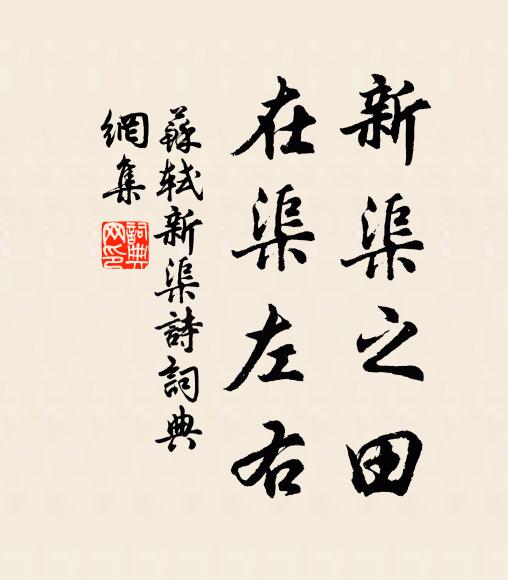 新渠之田
在渠左右
蘇軾新渠詩詞典
網集
詞典
网印